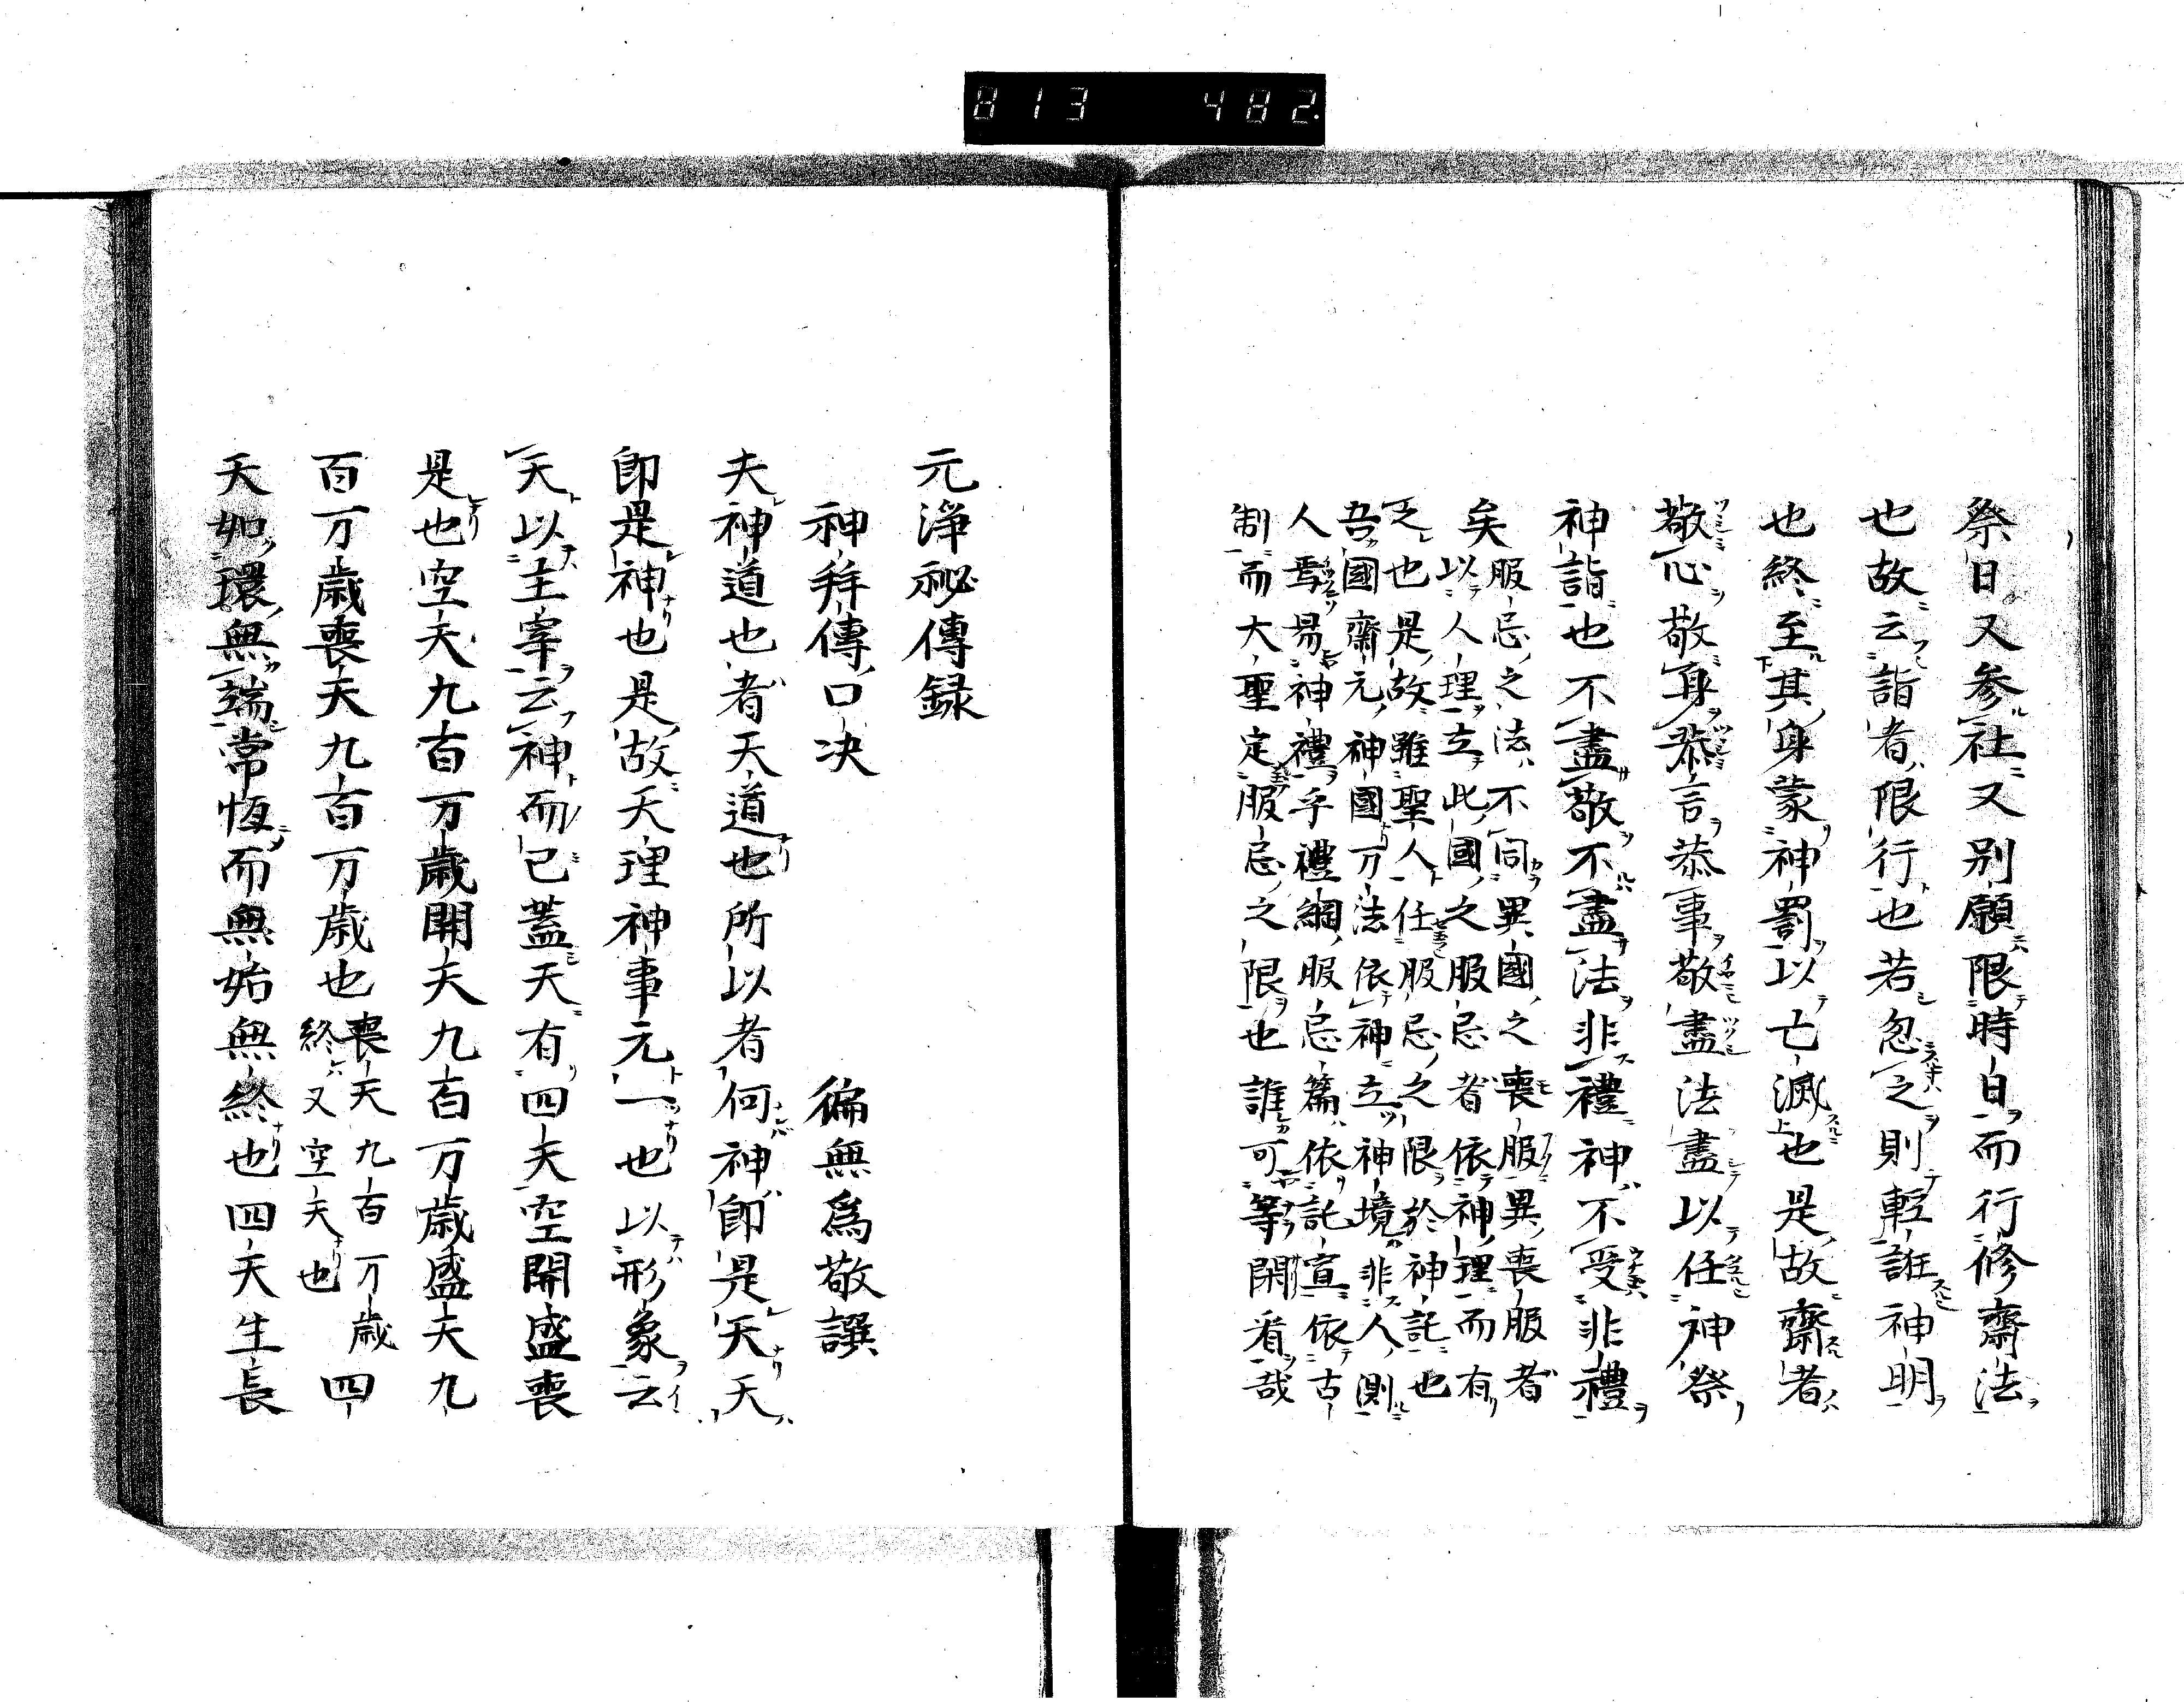 813 482.
祭日又参社又別願限時日而行修齋法
也故云詣者限行也若忽之則輕誑神明
也終至其身蒙神罰以亡滅也是故齋者
敬心敬身恭言恭事敬盡法盡以任神祭
神詣也不盡敬不盡法非禮神不受非禮
矣服忌之法不同異國之喪服異喪服者
以人理立此國之服忌者依神理而有
之也是故雖聖人任服忌之限於神託也
吾國齋元神國万法依神立神境非人測
人焉易神禮乎禮綱服忌篇依託宣依古
制而大聖定服忌之限也誰可等閑看哉
元浄祕傳録
神拜傳口决
徧無爲敬譔
夫神道也者天道也所以者何神即是天天
即是神也是故天理神事元一也以形象云
天以主宰云神而已蓋天有四天空開盛喪
是也空天九百万歳開天九百万歳盛天九
百万歳喪天九百万歳也喪天九百万歳
終又空天也四
天如環無端常恆而無始無終也四天生長